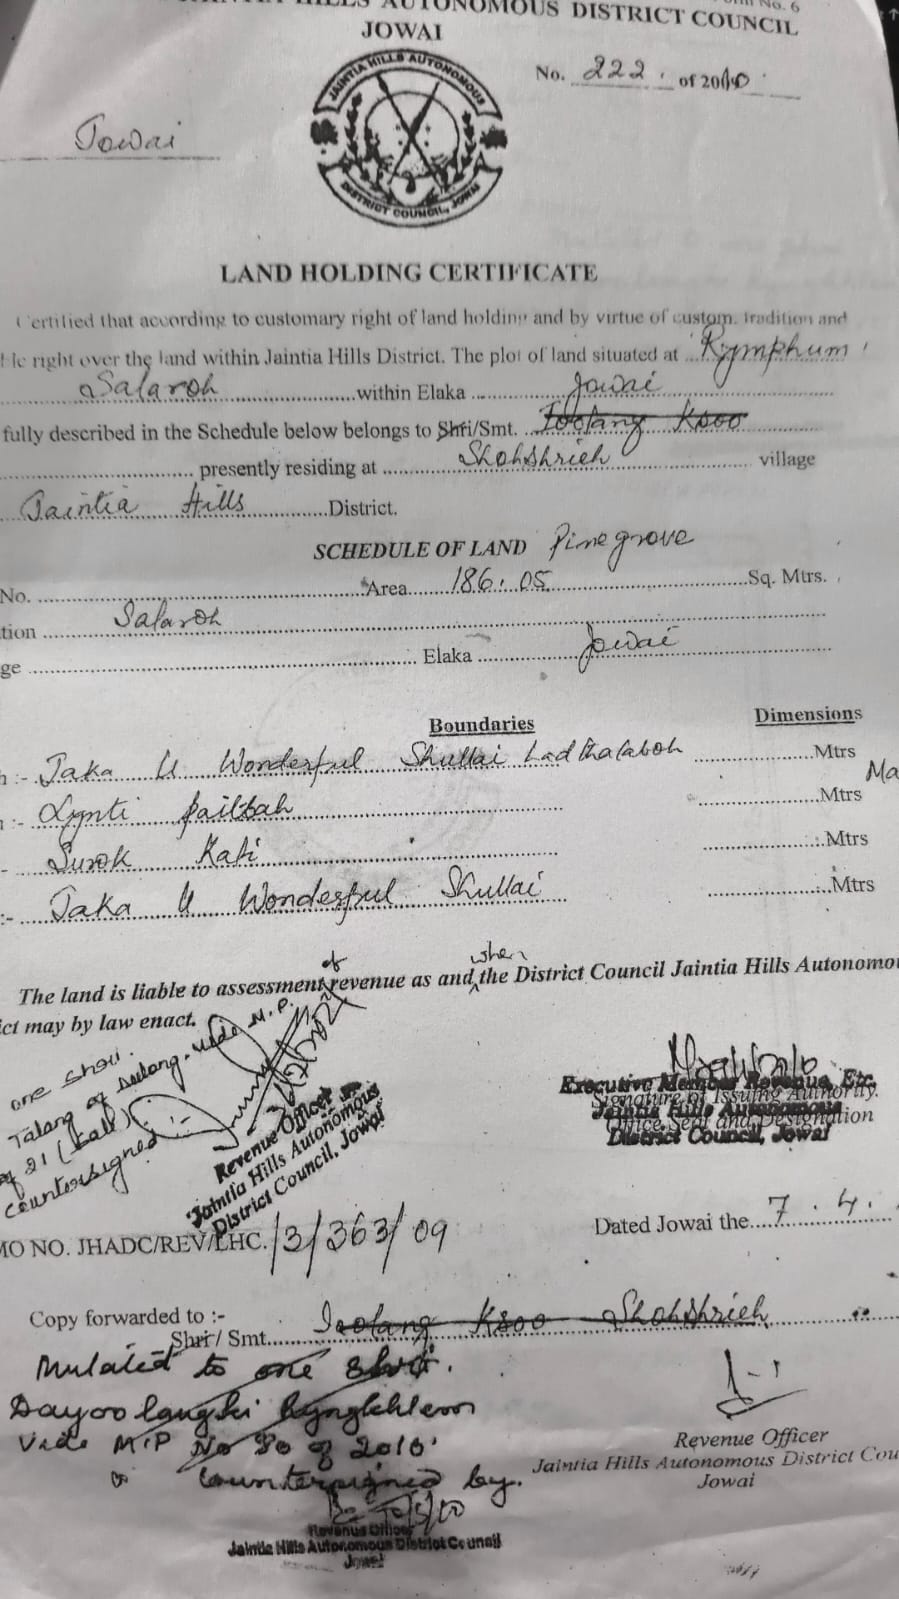 HILLS AUTONOMOUS DISTRICT COUNCIL
No. 6
JOWAI
No. 222. of 20
Jowai
JAINTIA HILLS AUTONOMOUS
DISTRICT COUNCIL, JOWAI
LAND HOLDING CERTIFICATE
Certified that according to customary right of land holding and by virtue of custom, tradition and
right over the land within Jaintia Hills District. The plot of land situated at Rymphum
Salaroh within Elaka Jowai
fully described in the Schedule below belongs to Shri/Smt. Iootang Ksoo
presently residing at Shohshrieh village
Jaintia Hills District.
SCHEDULE OF LAND Pinegrove
No. Area 186.05 Sq. Mtrs.
tion Salaroh
ge Elaka Jowai
Boundaries Dimensions
:- Jaka U Wonderful Shullai Ladthalaboh Mtrs
:- Lynti Mtrs
Ma
- Surok Kati Mtrs
:- Jaka U Wonderful Shullai Mtrs
The land is liable to assessment of revenue as and when the District Council Jaintia Hills Autonomo
ct may by law enact.
one Shri.
Talang of vide M.P.
of 21
countersigned :-
Revenue Officer
Jaintia Hills Autonomous
District Council, Jowai
Executive Member Revenue, Etc.
Signature of Issuing Authority.
Jaintia Hills Autonomous
Office Seal and Designation
District Council, Jowai
MO NO. JHADC/REV/LHC. /3/363/09
Dated Jowai the 7.4.
Copy forwarded to :-
Shri / Smt. Iootang Ksoo Shohshrieh
Mutated to one Shri.
Dayoo langki Ryngkhlem
Vide M.P No 80 of 2010
Countersigned by.
Revenue Officer
Jaintia Hills Autonomous District Council
Jowai
Revenue Officer
Jaintia Hills Autonomous District Cou
Jowai